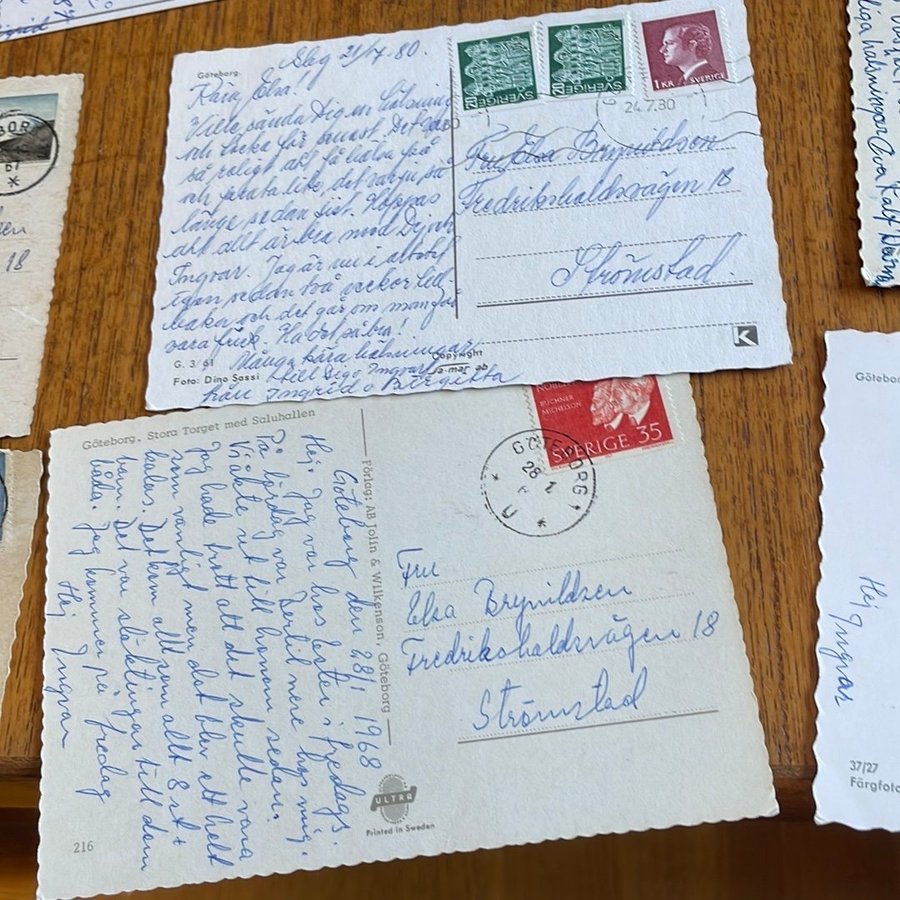 Göteborg.
Dag 21/7.80.
Kära Elsa!
Ville sända Dig en hälsning
och tacka för senast. Det var
så roligt att få hälsa på
och prata lite, det var ju så
länge sedan sist. Hoppas
att allt är bra med Dig och
Ingvar. Jag är nu i arbete
igen sedan två veckor till-
baka och det går om man får
vara frisk. Ha det så bra!
Många kära hälsningar
till Dig o Ingvar
från Ingrid o Birgitta
G. 3/61
Foto: Dino Sassi
Copyright
SVERIGE
SVERIGE
1 KR SVERIGE
24.7.80
Fru Elsa Brynildson
Fredrikshaldsvägen 18
Strömstad.
K
Göteborg. Stora Torget med Saluhallen
Göteborg den 28/1 1968
Hej. Jag var hos Ester i fredags.
På lördag var Bertil nere hos mig.
Vi åkte ut till honom sedan.
Jag hade trott att det skulle vara
som vanligt men det blev ett helt
kalas. Det kom allt som allt 8 st
barn. Det var släktingar till dem
båda. Jag kommer på fredag
Hej Ingvar
Förlag: AB Jolin & Wilkenson, Göteborg
ULTRA
Printed in Sweden
216
BUCHNER
MICHELSON
SVERIGE 35
GÖTEBORG
28 1
Fru
Elsa Brynildsen
Fredrikshaldsvägen 18
Strömstad
18
67
liga hälsningar
Göteborg
Hej
Ingvar
37/27
Färgfoto